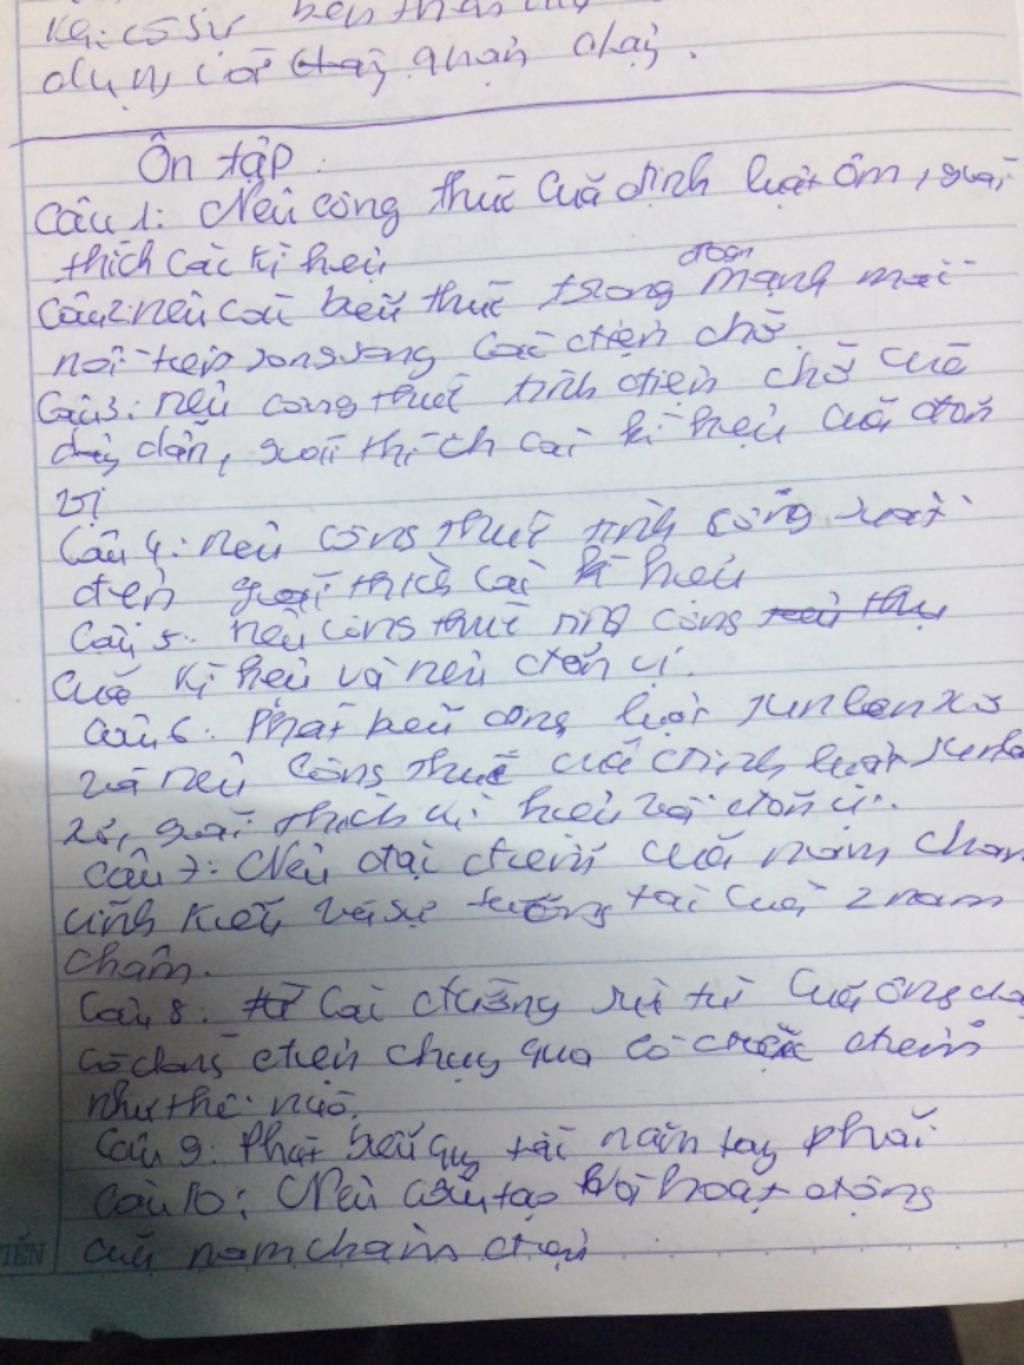 dụng với quán chạy.
Ôn tập
Câu 1: Nêu công thức của định luật ôm, giải
thích các kí hiệu
Câu 2: nêu các biểu thức trong đoạn mạnh mắc
nối tiếp song song các điện chở.
Câu 3: nêu công thức tính điện chở của
dây dẫn, giải thích các kí hiệu của đơn
vị
Câu 4: nêu công thức tính công xuất
điện giải thích các kí hiệu
Câu 5: nêu công thức tính công
của kí hiệu và nêu đơn vị.
Câu 6: Phát biểu định luật Junlenxơ
và nêu công thức của định luật Junle
xơ, giải thích kí hiệu và đơn vị.
Câu 7: Nêu đặc điểm của nam châm
vĩnh cửu và sự tương tác của 2 nam
châm.
Câu 8: Các đường sức từ của ống dây
có dòng điện chạy qua có đặc điểm
như thế nào.
Câu 9: Phát biểu quy tắc nắm tay phải
Câu 10: Nêu cấu tạo và hoạt động
của nam châm điện